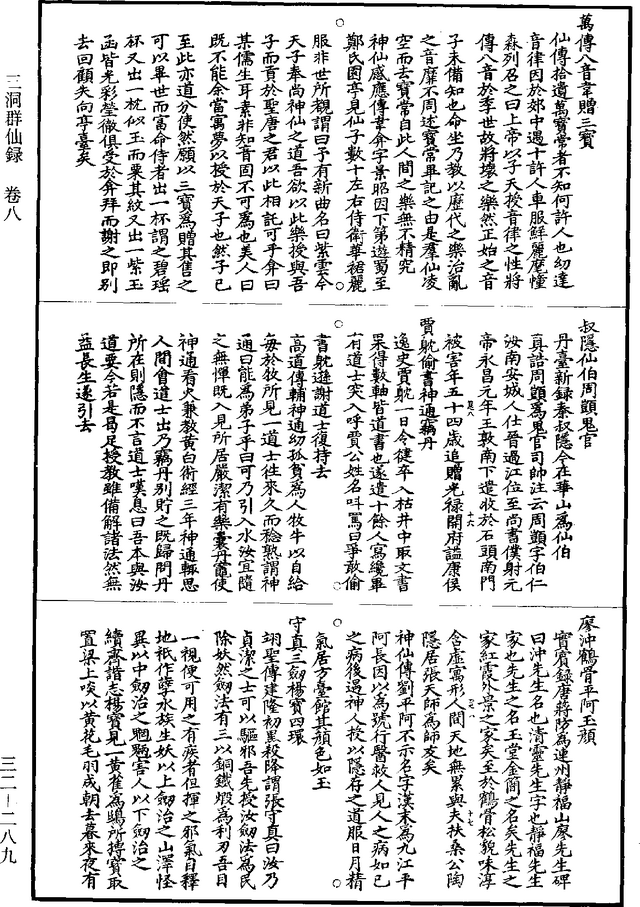 三洞群仙録　卷八
三二－二八九
萬傳八音韋贈三寶
仙傳拾遺萬寶常者不知何許人也幼達
音律因於郊中遇十許人車服鮮麗麾幢
森列名之曰上帝以子天授音律之性將
傳八音於季世故將壞之樂然正始之音
子未備知也命坐乃教以歷代之樂治亂
之音靡不周述寶常畢記之由是羣仙凌
空而去寶常自此人間之樂無不精究
神仙感應傳韋弇字景昭因下第遊蜀至
鄭氏園亭見仙子數十左右侍衛華裾麗
服非世所覩謂曰予有新曲名曰紫雲今
天子奉尚神仙之道吾欲以此樂授與吾
子而貢於聖唐之君以此相託可乎弇曰
某儒生耳素非知音固不可爲也美人曰
既不能余當寓夢以授於天子也然子已
至此亦道分使然願以三寶爲贈其售之
可以畢世而富命侍者出一杯謂之碧瑶
杯又出一枕似玉而栗其紋又出一紫玉
函皆光彩瑩徹俱受於弇拜而謝之即別
去回顧失向亭臺矣
叔隱仙伯周顗鬼官
丹臺新録秦叔隱今在華山爲仙伯
真誥周顗爲鬼官司帥注云周顗字伯仁
汝南安城人仕晉過江位至尚書僕射元
帝永昌元年王敦南下遣收於石頭南門
被害年五十四歲追贈光禄開府謚康侯
賈躭偷書神通竊丹
逸史賈躭一日令健卒入枯井中取文書
果得數軸皆道書也遂遣十餘人寫纔畢
有道士突入呼賈公姓名叫罵曰爭敢偷
書躭遜謝道士復持去
高道傳輔神通幼孤貧爲人牧牛以自給
每於牧所見一道士往來久而稔熟謂神
通曰能爲弟子乎曰可乃引入水汝宜隨
之無憚既入見所居嚴潔有藥囊丹竈使
神通看火兼教黄白術經三年神通輒思
人間會道士出乃竊丹别貯之既歸問丹
所在則隱而不言道士嘆息曰吾本與汝
道要今若是曷足授教雖備解諸法然無
益長生遂引去
廖沖鶴骨平阿玉顔
實賓録唐蔣防爲連州靜福山廖先生碑
曰沖先生名也清靈先生字也靜福先生
家也先生之名玉堂金簡之名矣先生之
家紅霞外景之家矣至於鶴骨松貌味淳
含虛寓形人間天地無累與夫扶桑公陶
隱居張天師爲師友矣
神仙傳劉平阿不示名字漢末爲九江平
阿長因以爲號行醫救人見人之病如已
之病後遇神人授以隱存之道服日月精
氣居方臺館其顔色如玉
守真三劒楊寶四環
翊聖傳建隆初里殺降謂張守真曰汝乃
貞潔之士可以驅邪吾先授汝劒法爲民
除妖然劒法有三以銅鐵煅爲利刃吾目
一視便可用之有疾者但揮之邪氣自釋
地祇作孽水族生妖以上劒治之山澤怪
異以中劒治之魍魎害人以下劒治之
續齊諧志楊寶見一黄雀爲鴟所搏寶取
置梁上啖以黄花毛羽成朝去暮來夜有